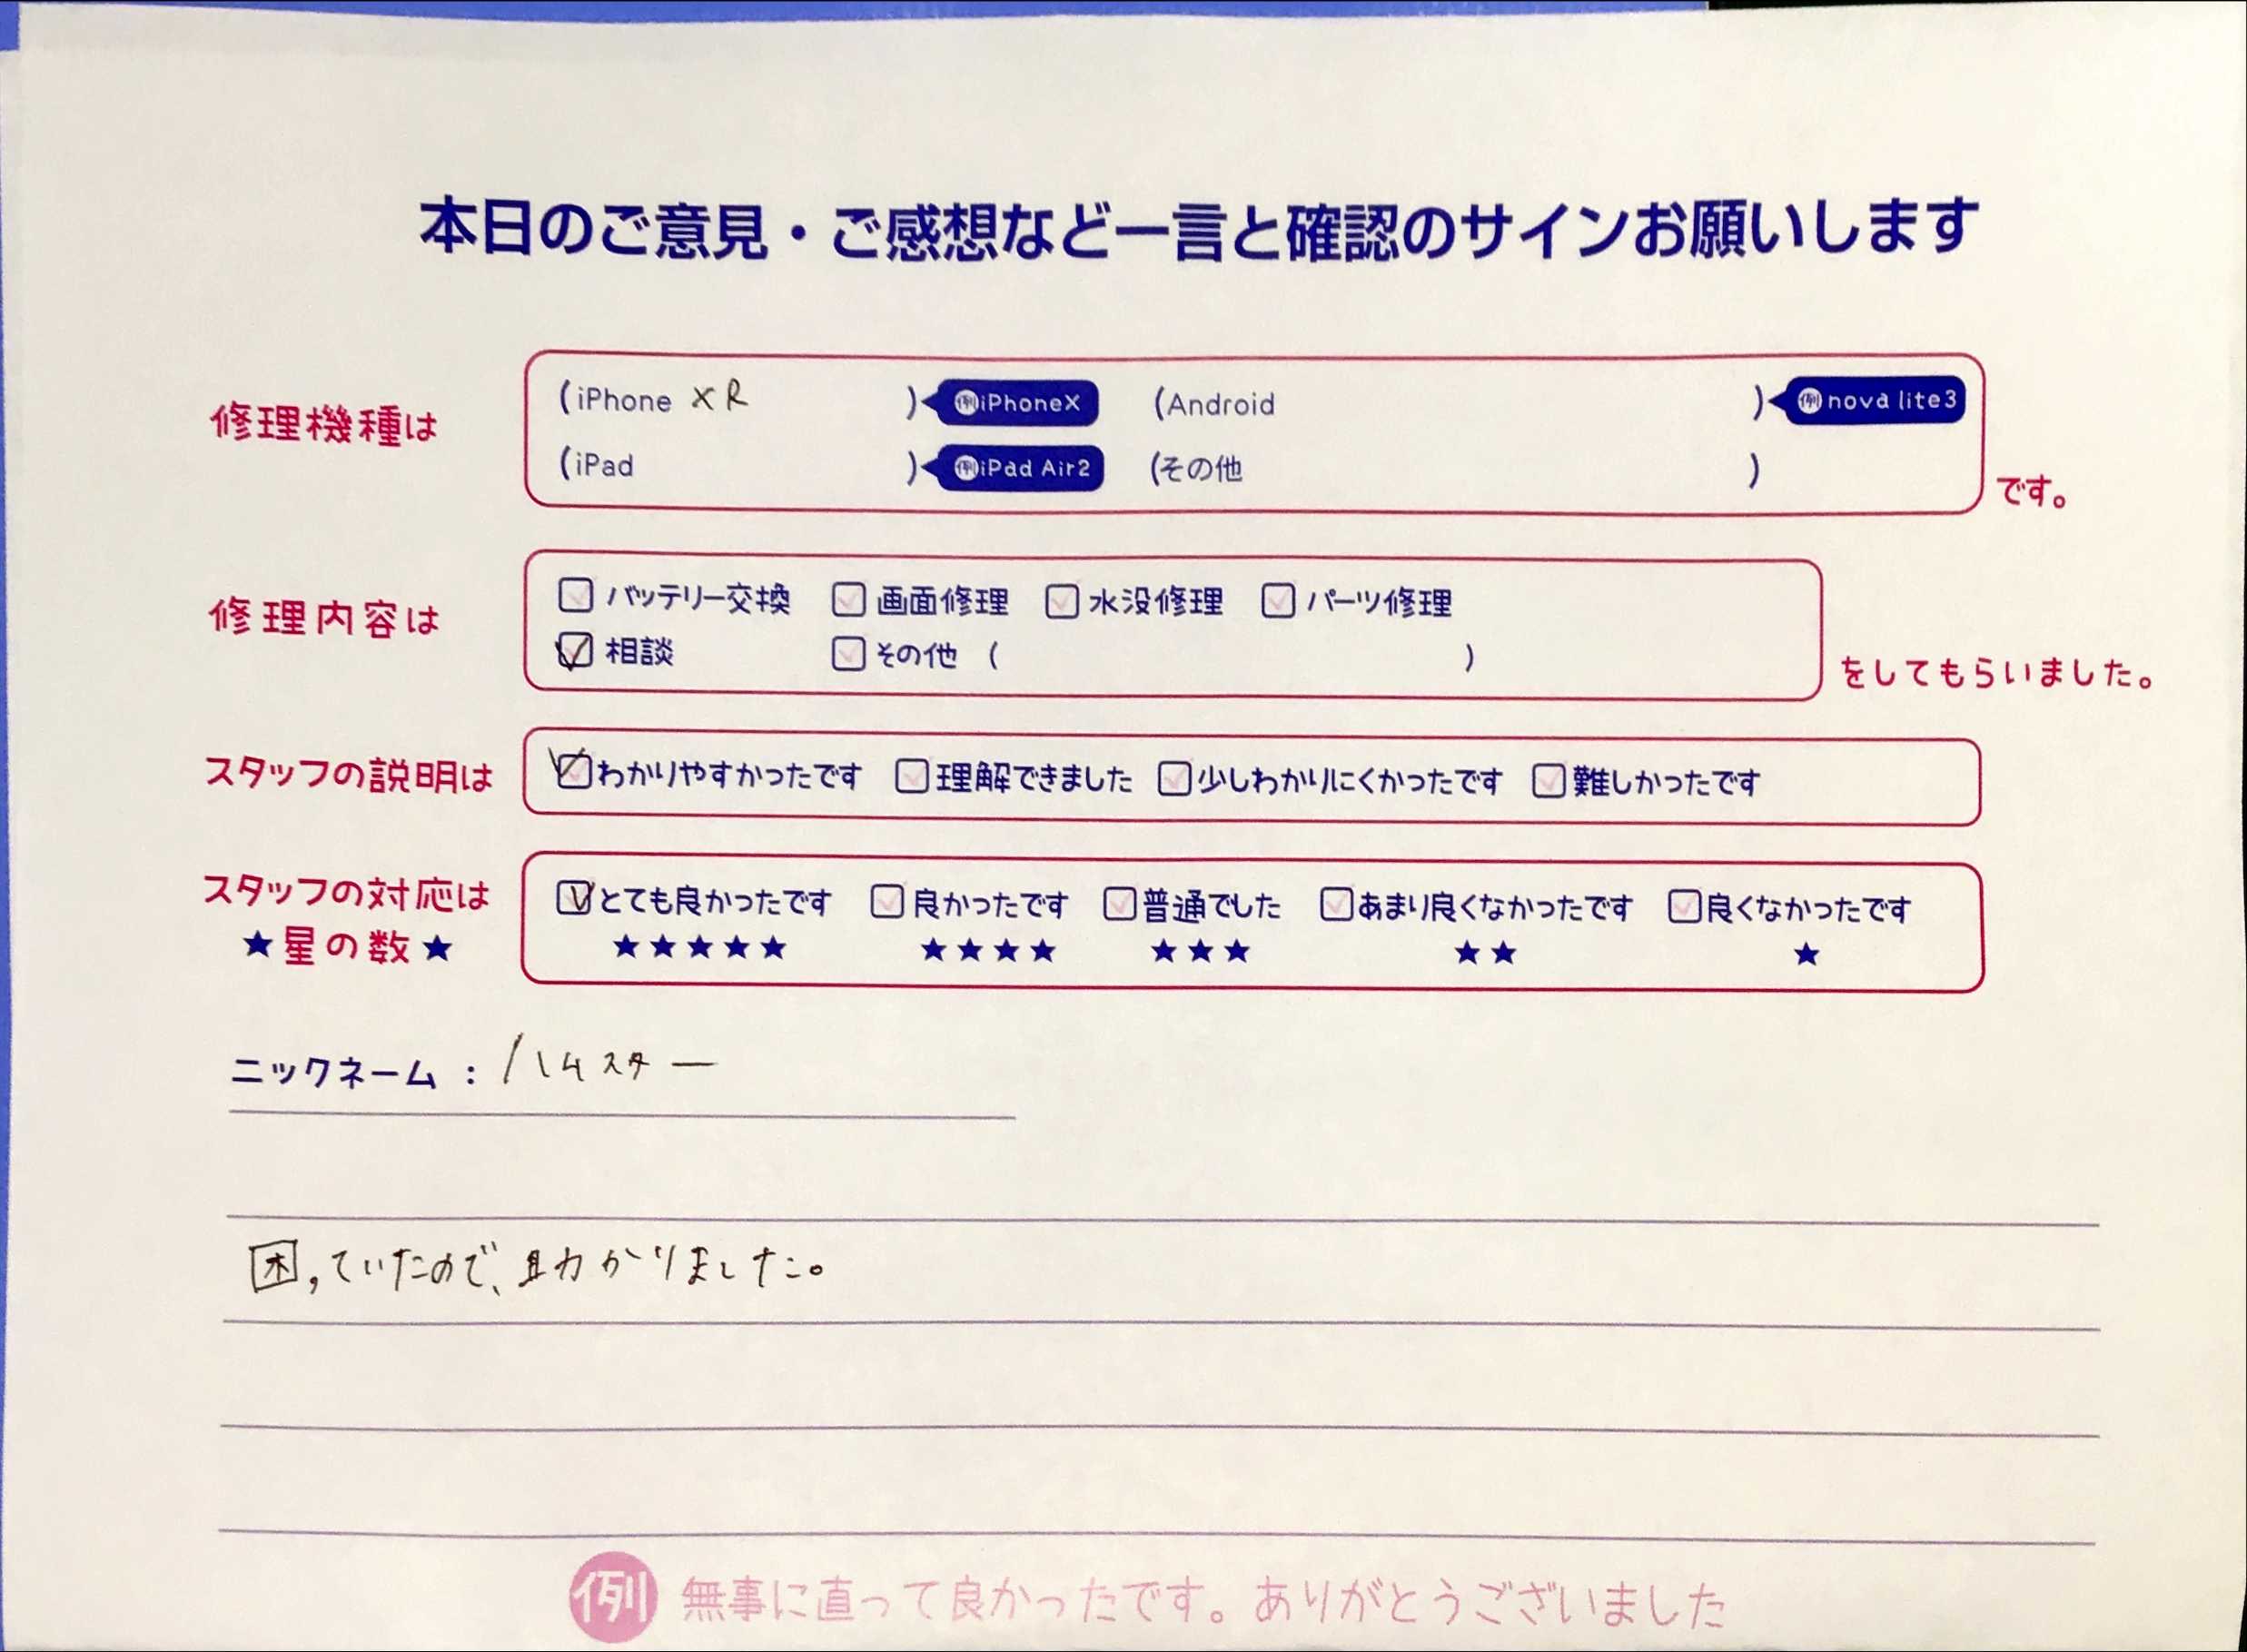 本日のご意見・ご感想など一言と確認のサインお願いします
修理機種は
(iPhone XR ) 例iPhoneX (Android ) 例nova lite3
(iPad ) 例iPad Air2 (その他 )
です。
修理内容は
バッテリー交換 画面修理 水没修理 パーツ修理
相談 その他 ( )
をしてもらいました。
スタッフの説明は
わかりやすかったです 理解できました 少しわかりにくかったです 難しかったです
スタッフの対応は
★星の数★
とても良かったです 良かったです 普通でした あまり良くなかったです 良くなかったです
★★★★★ ★★★★ ★★★ ★★ ★
ニックネーム : ハムスター
困っていたので、助かりました。
例 無事に直って良かったです。ありがとうございました